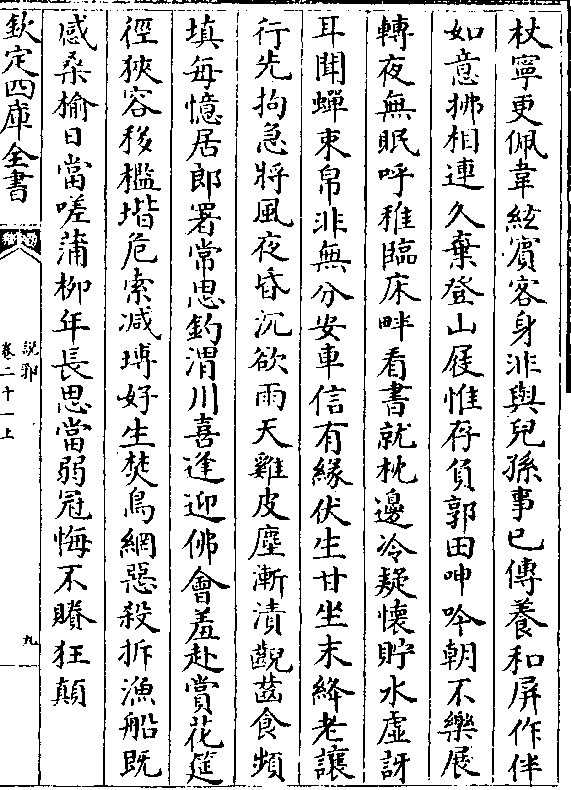 杖寧更佩韋絃賓客身非與兒孫事已傳養和屏作伴
如意拂相連久棄登山屐惟存負郭田呻吟朝不樂展
轉夜無眠呼稚臨床畔看書就枕邊冷疑懷貯水虛訝
耳聞蟬束帛非無分安車信有緣伏生甘坐末絳老讓
行先拘急將風夜昏沉欲雨天雞皮塵漸漬齯齒食頻
填每憶居郎署常思釣渭川喜逢迎佛會羞赴賞花筵
徑狹容移檻堦危索减塼好生焚鳥網惡殺拆漁船既
感桑榆日當嗟蒲柳年長思當弱冠悔不賸狂顛
欽定四庫全書
說郛
卷二十一上
九